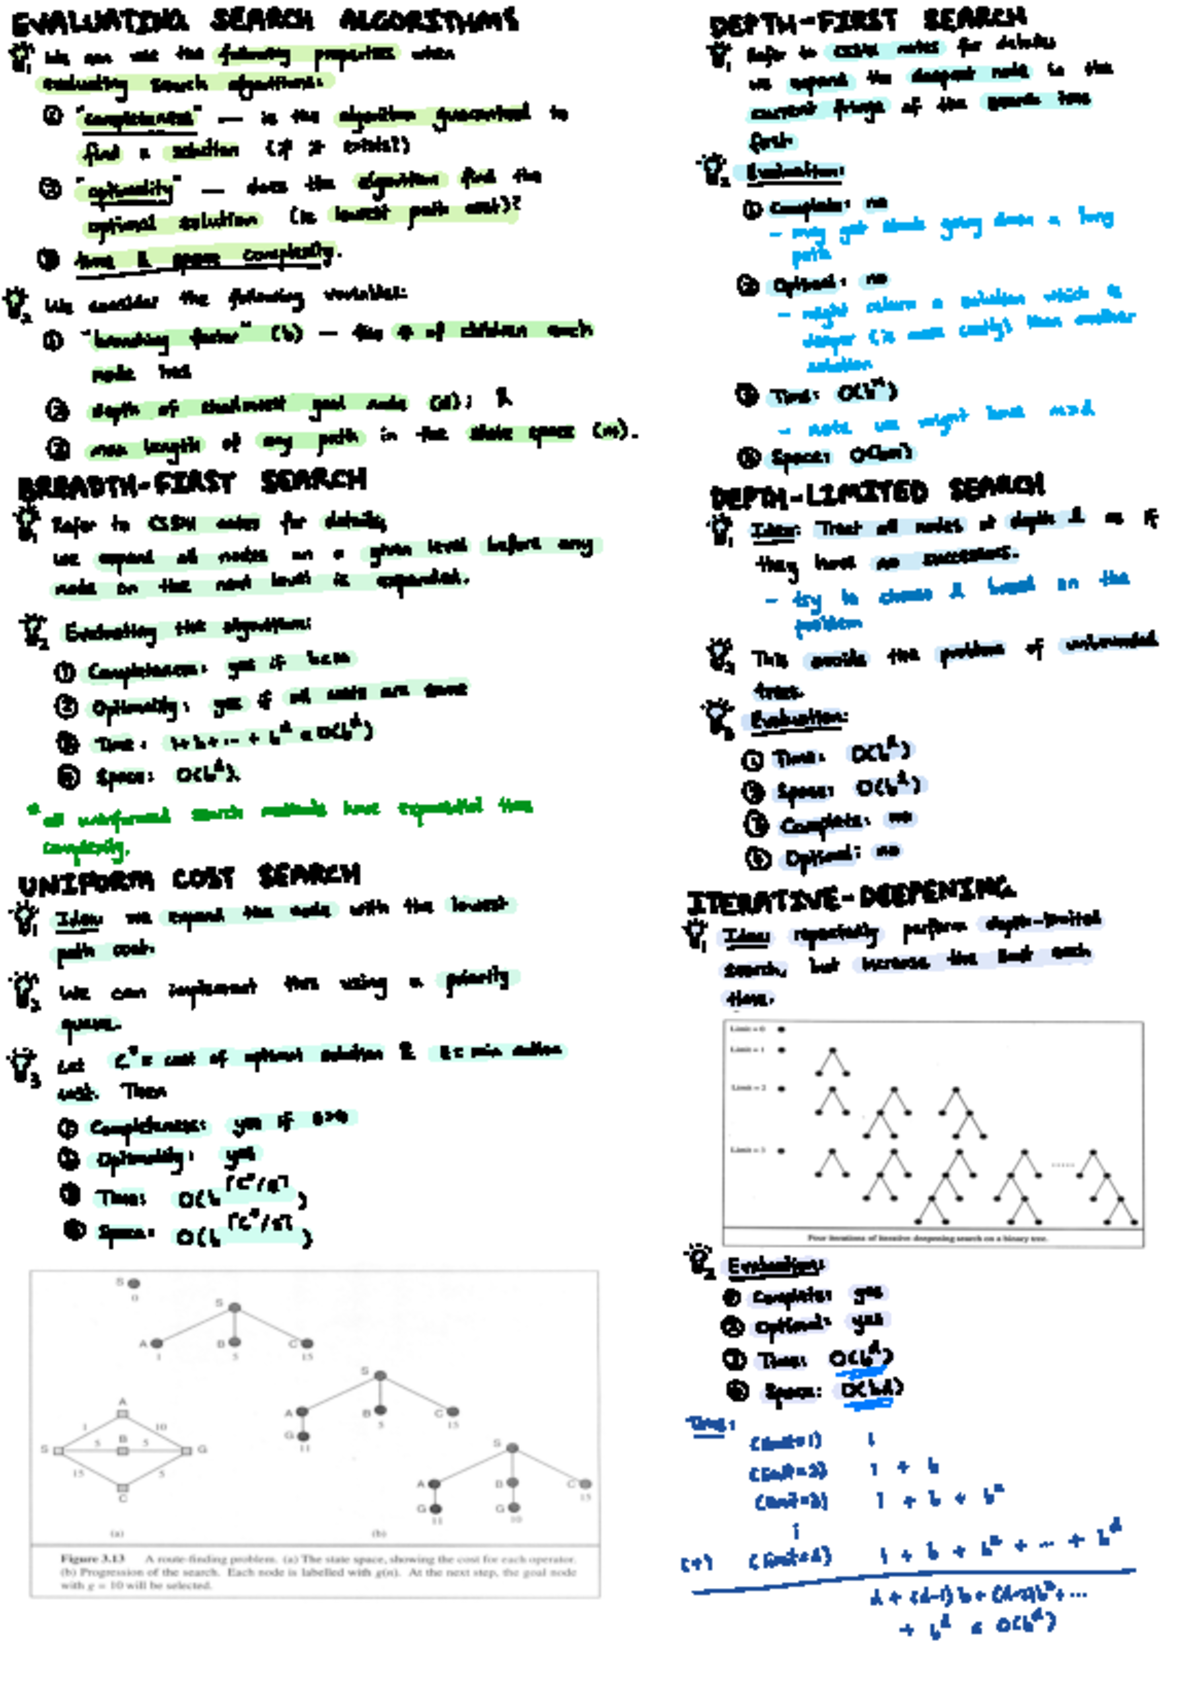 EVALUATING SEARCH ALGORITHMS
1 We can use the following properties when
evaluating search algorithms:
① "completeness" — is the algorithm guaranteed to
find a solution (if it exists?)
② "optimality" — does the algorithm find the
optimal solution (ie lowest path cost)?
③ time & space complexity.
2 We consider the following variables:
① "branching factor" (b) — the # of children each
node has
② depth of shallowest goal node (d); &
③ max length of any path in the state space (m).
BREADTH-FIRST SEARCH
1 Refer to CS234 notes for details;
we expand all nodes on a given level before any
node on the next level is expanded.
2 Evaluating the algorithm:
① Completeness: yes if b<∞
② Optimality: yes if all costs are same
③ Time: 1+b+...+b^d ∈ O(b^d)
④ Space: O(b^d).
* all uninformed search methods have exponential time
complexity.
UNIFORM COST SEARCH
1 Idea: we expand the node with the lowest
path cost.
2 We can implement this using a priority
queue.
3 Let C* = cost of optimal solution & ε = min action
cost. Then
① Completeness: yes if ε>0
② Optimality: yes
③ Time: O(b^⌈C*/ε⌉)
④ Space: O(b^⌈C*/ε⌉)
S
0
S
A B C
1 5 15
S
A B C
5 15
G
11
A
1 10
S 5 B 5 G
15 5
C
S
A B C
15
G G
11 10
(a) (b)
Figure 3.13 A route-finding problem. (a) The state space, showing the cost for each operator.
(b) Progression of the search. Each node is labelled with g(n). At the next step, the goal node
with g = 10 will be selected.
DEPTH-FIRST SEARCH
1 Refer to notes for details
we expand the deepest node in the
current fringe of the search tree
first.
2 Evaluation:
① Complete: no
- may get stuck going down a long
path
② Optimal: no
- might return a solution which is
deeper (ie more costly) than another
solution
③ Time: O(b^m)
- note we might have m>d
④ Space: O(bm)
DEPTH-LIMITED SEARCH
1 Idea: Treat all nodes at depth l as if
they have no successors.
- try to choose l based on the
problem
2 This avoids the problem of unbounded
trees.
3 Evaluation:
① Time: O(b^l)
② Space: O(b^l)
③ Complete: no
④ Optimal: no
ITERATIVE-DEEPENING
1 Idea: repeatedly perform depth-limited
search, but increase the limit each
time.
Limit = 0
Limit = 1
Limit = 2
Limit = 3 .....
Four iterations of iterative deepening search on a binary tree.
2 Evaluation:
① Complete: yes
② Optimal: yes
③ Time: O(b^d)
④ Space: O(bd)
Time:
(limit=1) 1
(limit=2) 1 + b
(limit=3) 1 + b + b²
⋮
(+) (limit=d) 1 + b + b² + ... + b^d
d + (d-1)b + (d-2)b² + ...
+ b^d ∈ O(b^d)